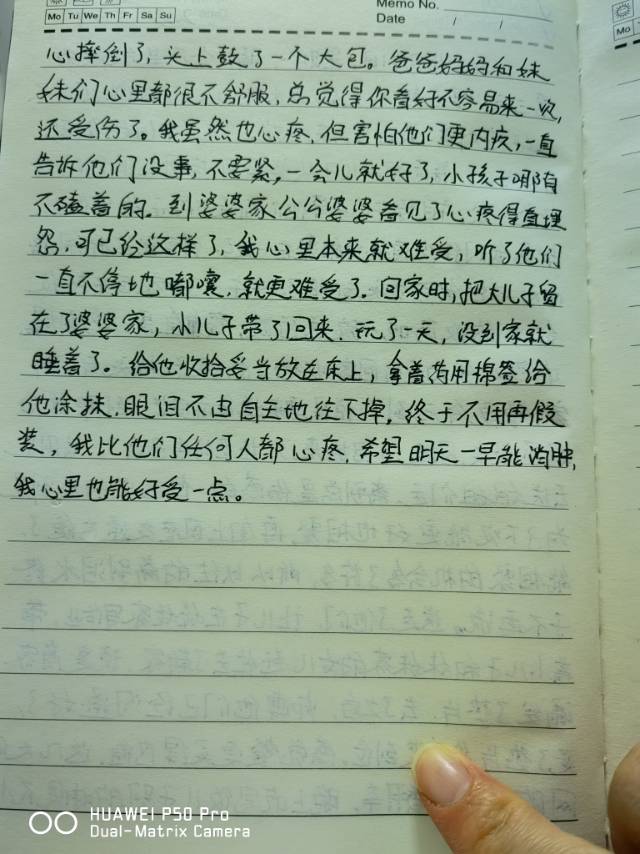 Memo No.
Mo Tu We Th Fr Sa Su
Date / /
Mo
心摔倒了，头上鼓了一个大包。爸爸妈妈和妹
妹们心里都很不舒服，总觉得你看好不容易来一次，
还受伤了。我虽然也心疼，但害怕他们更内疚，一直
告诉他们没事，不要紧，一会儿就好了，小孩子哪有
不磕着的。到婆婆家公公婆婆看见了心疼得直埋
怨，可已经这样了，我心里本来就难受，听了他们
一直不停地嘟囔，就更难受了。回家时，把大儿子留
在了婆婆家，小儿子带了回来，玩了一天，没到家就
睡着了。给他收拾妥当放在床上，拿着药用棉签给
他涂抹，眼泪不由自主地往下掉，终于不用再假
装，我比他们任何人都心疼，希望明天一早能消肿，
我心里也能好受一点。
HUAWEI P50 Pro
Dual-Matrix Camera